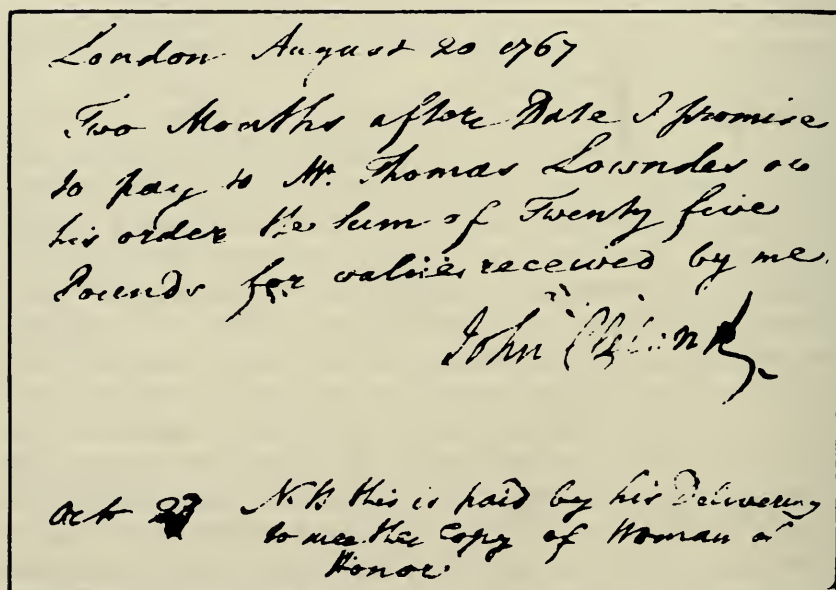 London August 20 1767
Two Months after Date I promise
to pay to Mr. Thomas Lowndes or
his order the Sum of Twenty five
Pounds for value received by me.
John Cleland
Oct 23 N.B this is paid by his Delivering
to mee the Copy of Woman of
Honor.